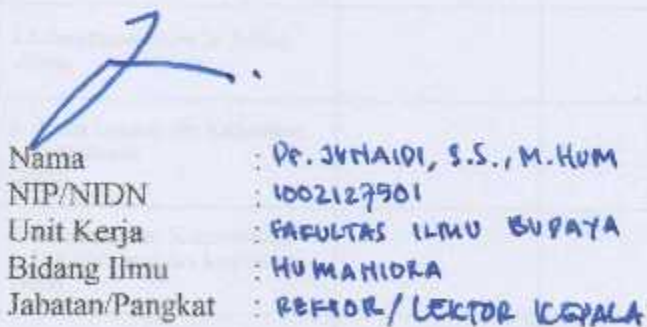 Nama : Dr. JUNAIDI, S.S., M.HUM
NIP/NIDN : 1002127501
Unit Kerja : FAKULTAS ILMU BUDAYA
Bidang Ilmu : HUMANIORA
Jabatan/Pangkat : REKTOR / LEKTOR KEPALA